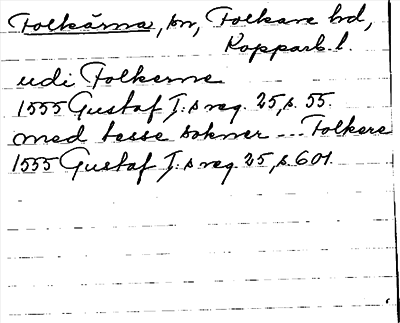 Folkärna, sn, Folkare hd,
Kopparb. l.
udi Folkerne
1555 Gustaf I:s reg. 25, s. 55.
med tesse sokner --- Folkere
1555 Gustaf I:s reg. 25, s. 601.